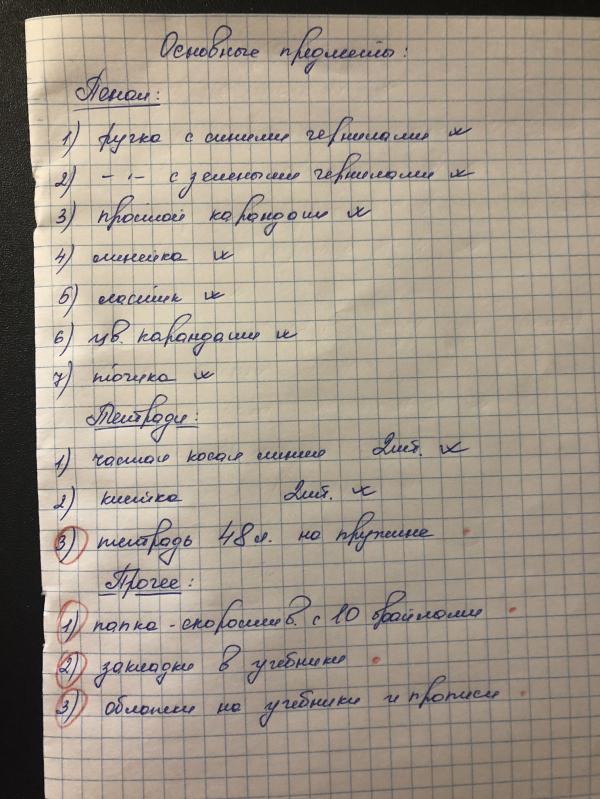 Основные предметы:
Пенал:
1) ручка с синими чернилами x
2) – " – с зелеными чернилами x
3) простой карандаш x
4) линейка x
5) ластик x
6) цв. карандаши x
7) точилка x
Тетради:
1) частая косая линия 2шт. x
2) клетка 2шт. x
3) тетрадь 48 л. на пружине
Прочее:
1) папка-скоросшив. с 10 файлами
2) закладки в учебники
3) обложки на учебники и прописи